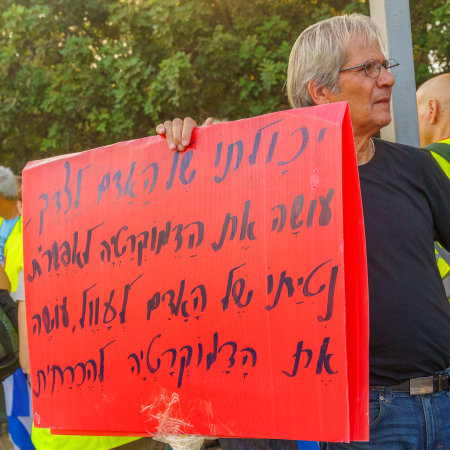 יכולתו של האדם לצדק,
עושה את הדמוקרטיה לאפשרית
נטיתו של האדם לעוול, עושה
את הדמוקרטיה להכרחית